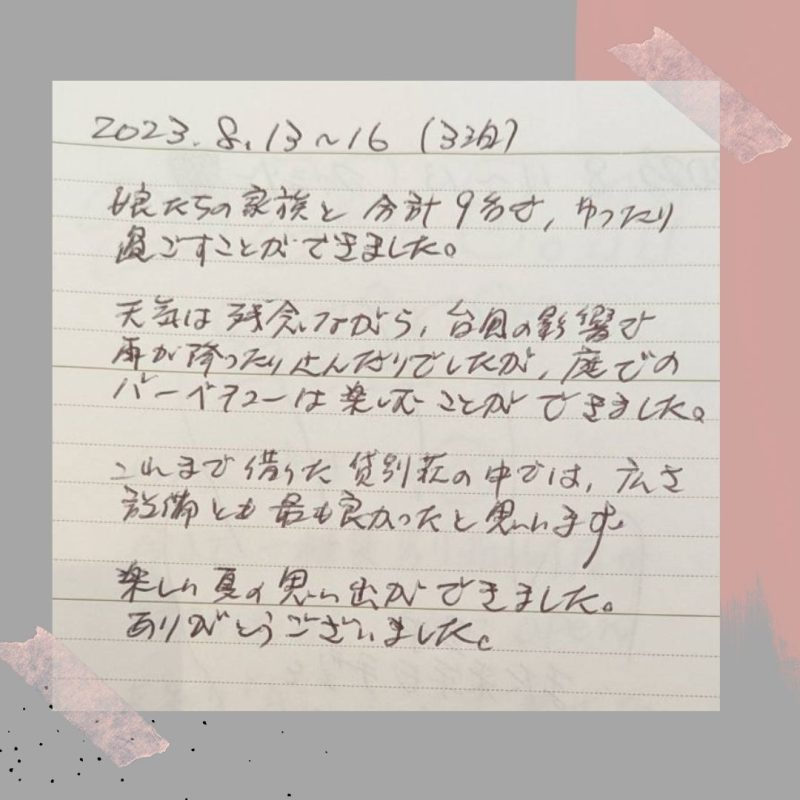 2023.8.13～16 (3泊)
娘たちの家族と合計9名で、ゆったり
過ごすことができました。
天気は残念ながら、台風の影響で
雨が降ったり止んだりでしたが、庭での
バーベキューは楽しむことができました。
これまで借りた貸別荘の中では、広さ
設備とも最も良かったと思います
楽しい夏の思い出ができました。
ありがとうございました。